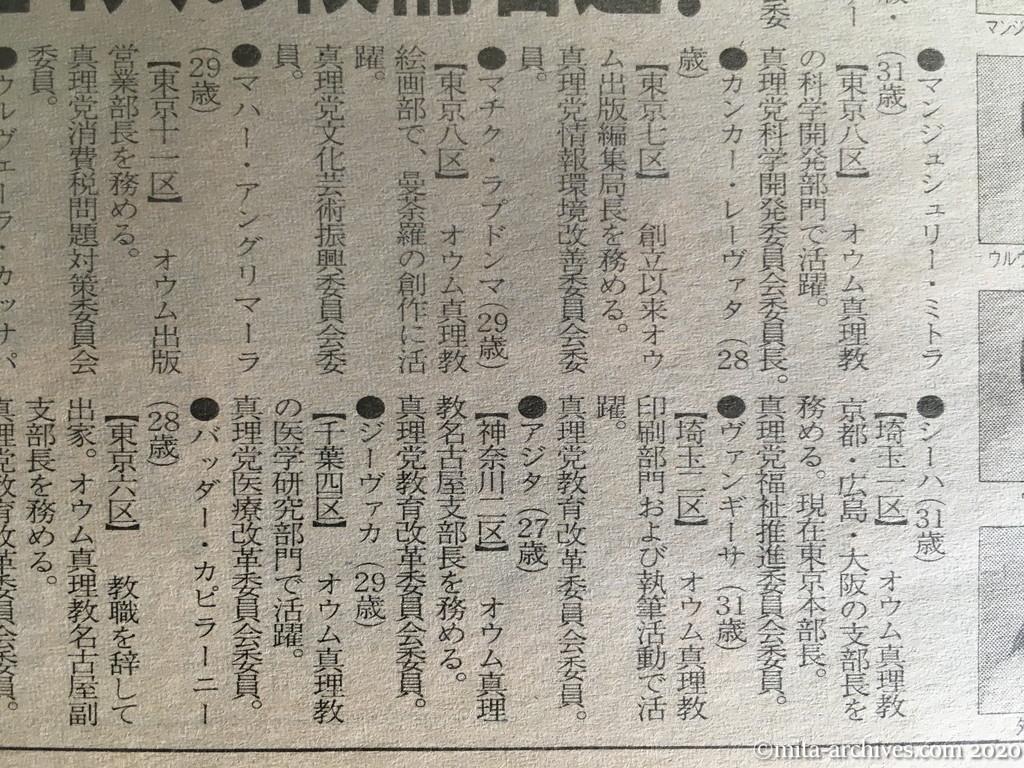 ●マンジュシュリー・ミトラ
(31歳)
【東京八区】　オウム真理教
の科学開発部門で活躍。
真理党科学開発委員会委員長。
●カンカー・レーヴァタ(28
歳)
【東京七区】　創立以来オウ
ム出版編集局長を務める。
真理党情報環境改善委員会委
員。
●マチク・ラプドンマ(29歳)
【東京八区】　オウム真理教
絵画部で、曼荼羅の創作に活
躍。
真理党文化芸術振興委員会委
員。
●マハー・アングリマーラ
(29歳)
【東京十一区】　オウム出版
営業部長を務める。
真理党消費税問題対策委員会
委員。
●ウルヴェーラ・カッサパ
●シーハ(31歳)
【埼玉一区】　オウム真理教
京都・広島・大阪の支部長を
務める。現在東京本部長。
真理党福祉推進委員会委員。
●ヴァンギーサ(31歳)
【埼玉二区】　オウム真理教
印刷部門および執筆活動で活
躍。
真理党教育改革委員会委員。
●アジタ(27歳)
【神奈川二区】　オウム真理
教名古屋支部長を務める。
真理党教育改革委員会委員。
●ジーヴァカ(29歳)
【千葉四区】　オウム真理教
の医学研究部門で活躍。
真理党医療改革委員会委員。
●バッダー・カピラーニー
(28歳)
【東京六区】　教職を辞して
出家。オウム真理教名古屋副
支部長を務める。
真理党教育改革委員会委員。
マンジ
ウルウ
©mita-archives.com 2020